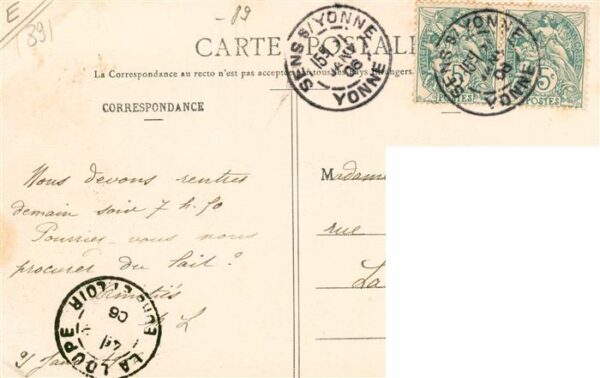 E
(39)
-89
CARTE POSTALE
La Correspondance au recto n'est pas acceptée par tous les pays étrangers.
CORRESPONDANCE
SENS S/YONNE
YONNE
15
JANV
06
SENS S/YONNE
YONNE
06
POSTES
5c
POSTES
Nous devons rentrer
demain soir 7 h. 50
Pourriez-vous nous
procurer du lait ?
Amitiés
L
Madame
rue
La
LA LOUPE
EURE ET LOIR
06